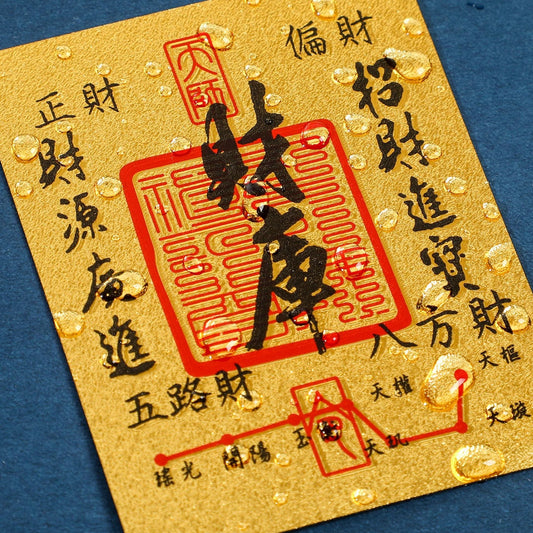 天師
偏財
正財
招財進寶
財庫
財源廣進
八方財
五路財
天樞
天權
天璇
天璣
玉衡
開陽
瑤光